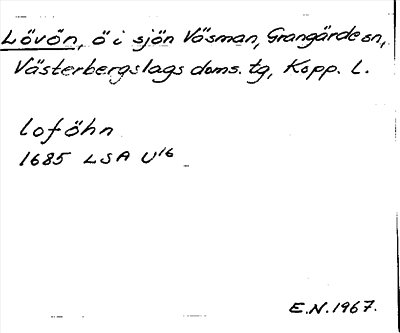 Lövön, ö i sjön Väsman, Grangärde sn,
Västerbergslags doms. tg, Kopp. L.
loföhn
1685 LSA U16
E.N. 1967.